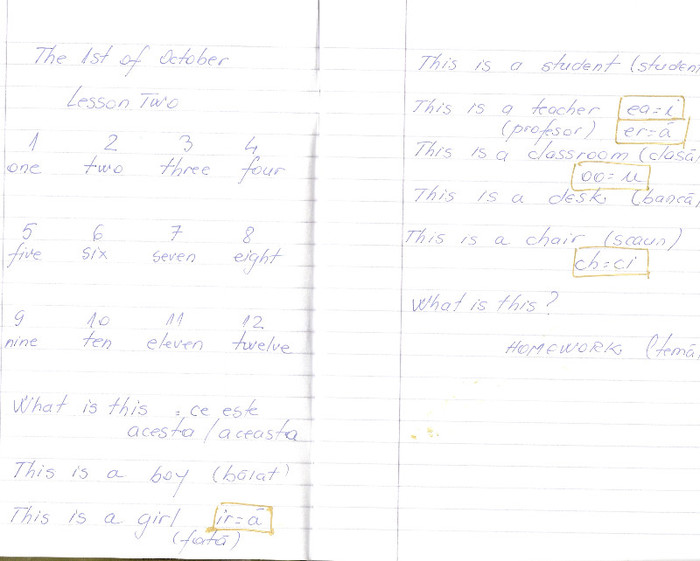 The 1st of October
Lesson Two
1 2 3 4
one two three four
5 6 7 8
five six seven eight
9 10 11 12
nine ten eleven twelve
What is this = ce este
acesta / aceasta
This is a boy (băiat)
This is a girl ir=ă
(fată)
This is a student (studen
This is a teacher ea=i
(profesor) er=ă
This is a classroom (clasă
oo=u
This is a desk (bancă
This is a chair (scaun)
ch=ci
What is this?
HOMEWORK (temă